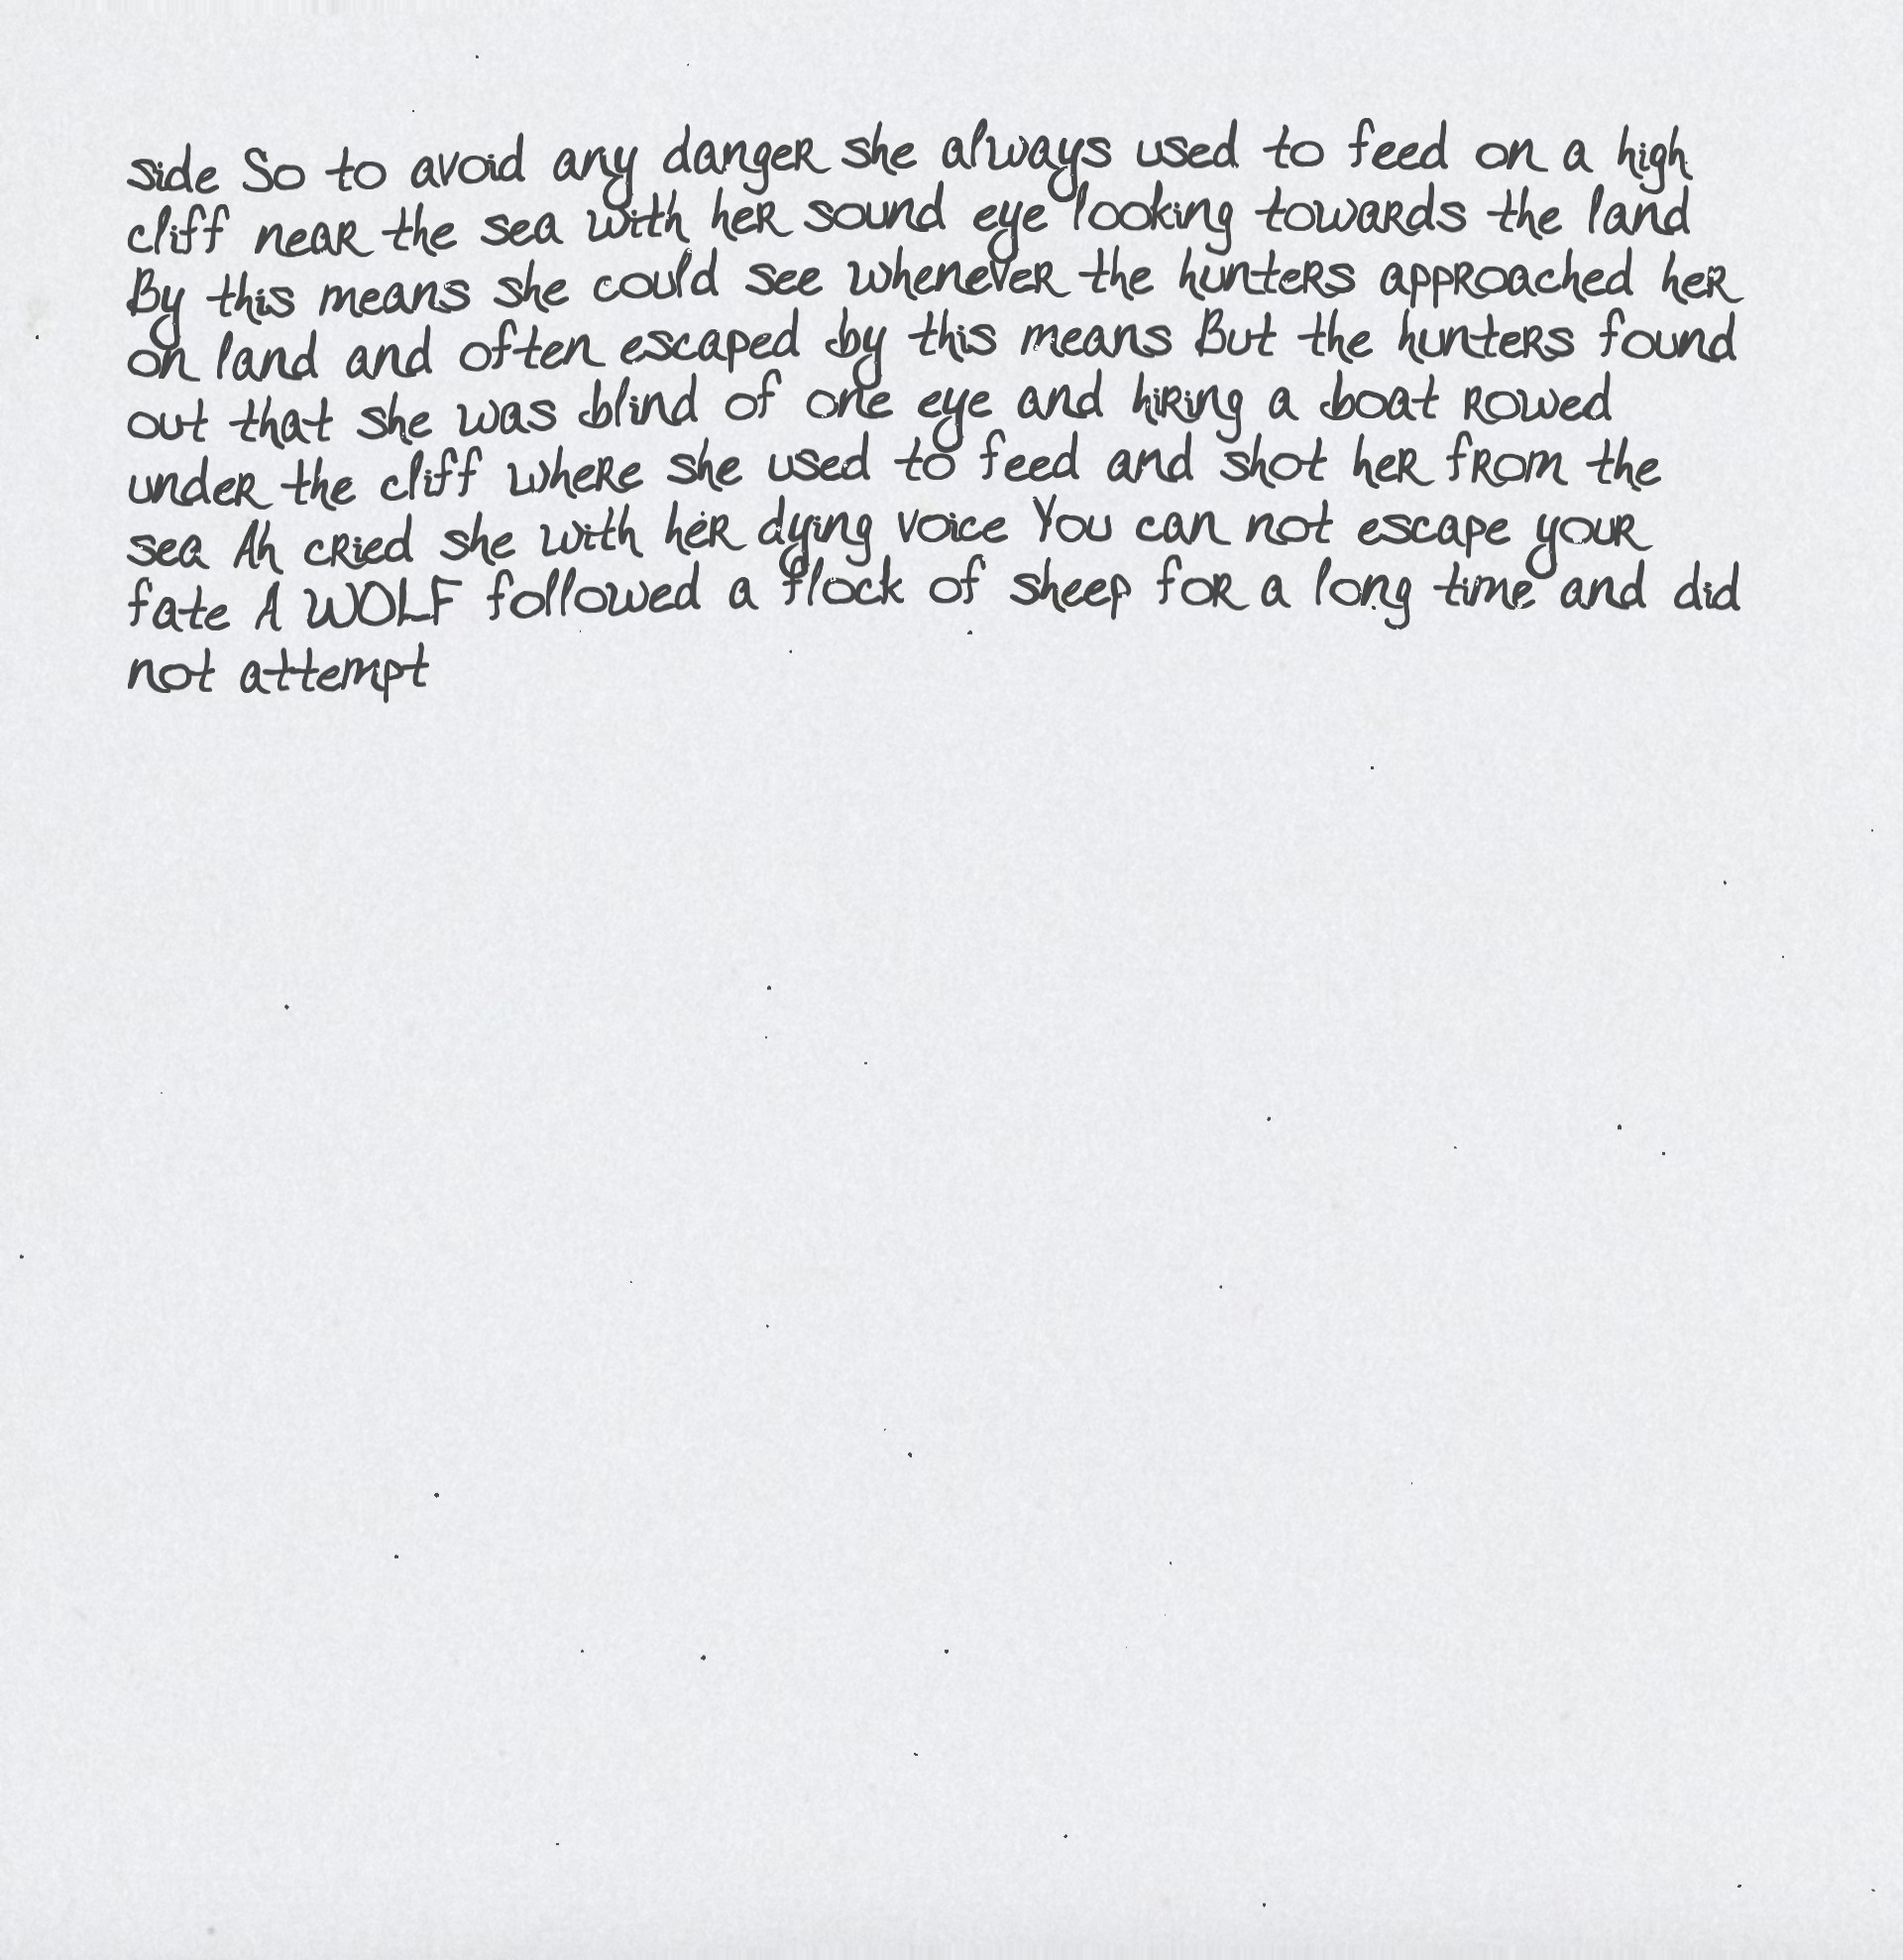 side So to avoid any danger she always used to feed on a high
cliff near the sea with her sound eye looking towards the land
By this means she could see whenever the hunters approached her
on land and often escaped by this means But the hunters found
out that she was blind of one eye and hiring a boat rowed
under the cliff where she used to feed and shot her from the
sea Ah cried she with her dying voice You can not escape your
fate A WOLF followed a flock of sheep for a long time and did
not attempt